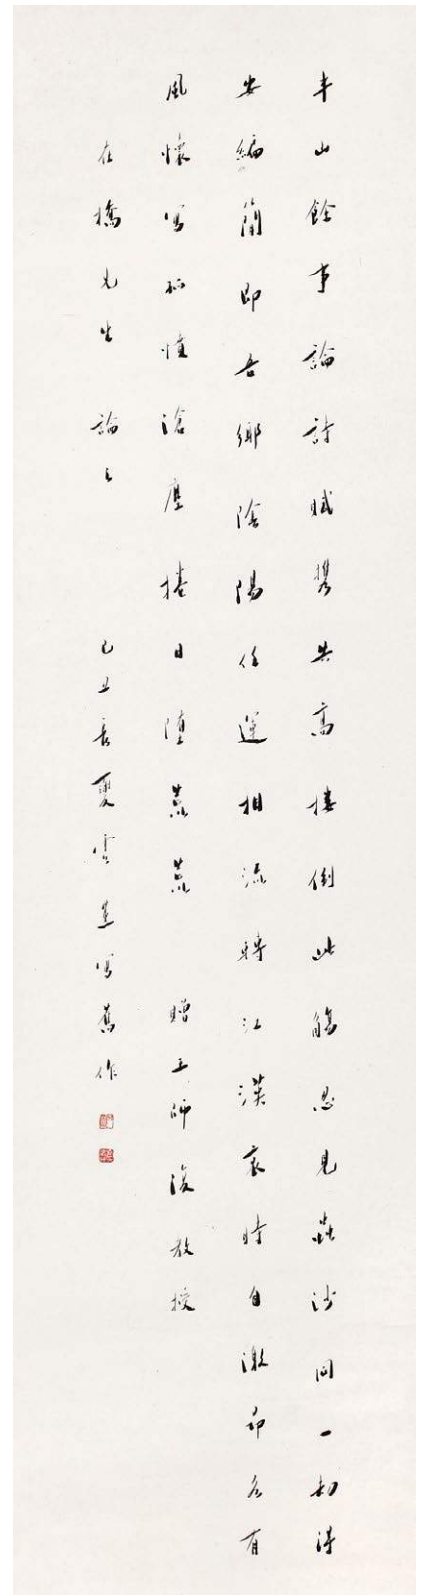 半山餘事論詩賦攜共高樓倒此觴忍見蟲沙同一劫得
安編簡即吾鄉陰陽任運相流轉江漢哀時自激昂各有
風懷寫孤憤滄塵捲日墮荒荒 贈王師復教授
在橋先生論之 己丑長夏虞愚寫舊作